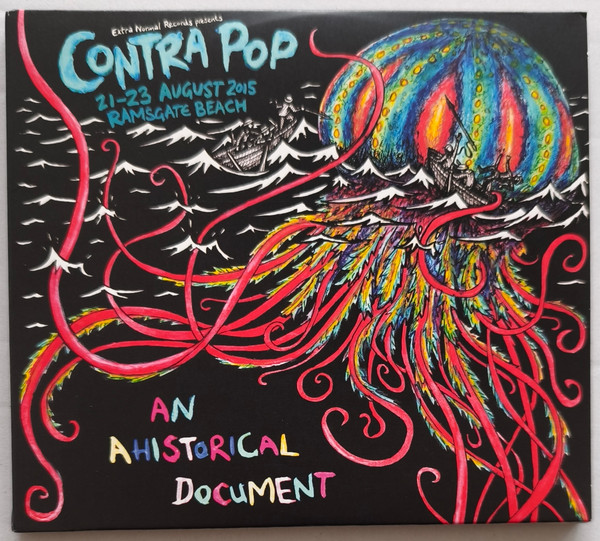 Extra Normal Records presents
CONTRA POP
21-23 AUGUST 2015
RAMSGATE BEACH
AN
AHISTORICAL
DOCUMENT